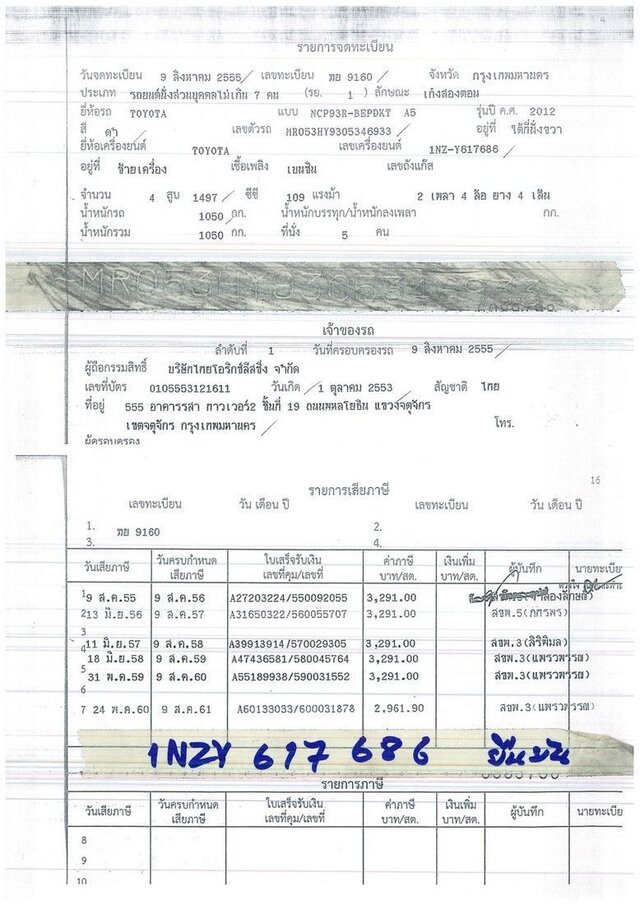 4
รายการจดทะเบียน
วันจดทะเบียน 9 สิงหาคม 2555 เลขทะเบียน ฆย 9160 จังหวัด กรุงเทพมหานคร
ประเภท รถยนต์นั่งส่วนบุคคลไม่เกิน 7 คน (รย. 1 ) ลักษณะ เก๋งสองตอน
ยี่ห้อรถ TOYOTA แบบ NCP93R-BEPDKT A5 รุ่นปี ค.ศ. 2012
สี ดำ เลขตัวรถ MR053HY9305346933 อยู่ที่ ใต้ที่นั่งขวา
ยี่ห้อเครื่องยนต์ TOYOTA เลขเครื่องยนต์ 1NZ-Y617686
อยู่ที่ ซ้ายเครื่อง เชื้อเพลิง เบนซิน เลขถังแก๊ส
จำนวน 4 สูบ 1497 ซีซี 109 แรงม้า 2 เพลา 4 ล้อ ยาง 4 เส้น
น้ำหนักรถ 1050 กก. น้ำหนักบรรทุก/น้ำหนักลงเพลา กก.
น้ำหนักรวม 1050 กก. ที่นั่ง 5 คน
MR053HY9305346933
เจ้าของรถ
ลำดับที่ 1 วันที่ครอบครองรถ 9 สิงหาคม 2555
ผู้ถือกรรมสิทธิ์ บริษัทไทยโอริกซ์ลีสซิ่ง จำกัด
เลขที่บัตร 0105553121611 วันเกิด 1 ตุลาคม 2553 สัญชาติ ไทย
ที่อยู่ 555 อาคารรสา ทาวเวอร์2 ชั้นที่ 19 ถนนพหลโยธิน แขวงจตุจักร
เขตจตุจักร กรุงเทพมหานคร โทร.
ผู้ครอบครอง
16
รายการเสียภาษี
เลขทะเบียน วัน เดือน ปี เลขทะเบียน วัน เดือน ปี
1. ฆย 9160 2.
3. 4.
วันเสียภาษี วันครบกำหนดเสียภาษี ใบเสร็จรับเงิน เลขที่คุม/เลขที่ ค่าภาษี บาท/สต. เงินเพิ่ม บาท/สต. ผู้บันทึก นายทะเบีย
1 9 ส.ค.55 9 ส.ค.56 A27203224/550092055 3,291.00
2 13 มิ.ย.56 9 ส.ค.57 A31650322/560055707 3,291.00 สขพ.5(ภัทรพร)
3
4 11 มิ.ย.57 9 ส.ค.58 A39913914/570029305 3,291.00 สขพ.3(สิริพิมล)
18 มิ.ย.58 9 ส.ค.59 A47436581/580045764 3,291.00 สขพ.3(แพรวพรรณ)
5 31 พ.ค.59 9 ส.ค.60 A55189938/590031552 3,291.00 สขพ.3(แพรวพรรณ)
6
7 24 พ.ค.60 9 ส.ค.61 A60133033/600031878 2,961.90 สขพ.3(แพรวพรรณ)
1NZY 617 686 ยืนยัน
รายการภาษี
วันเสียภาษี วันครบกำหนดเสียภาษี ใบเสร็จรับเงิน เลขที่คุม/เลขที่ ค่าภาษี บาท/สต. เงินเพิ่ม บาท/สต. ผู้บันทึก นายทะเบีย
8
9
10